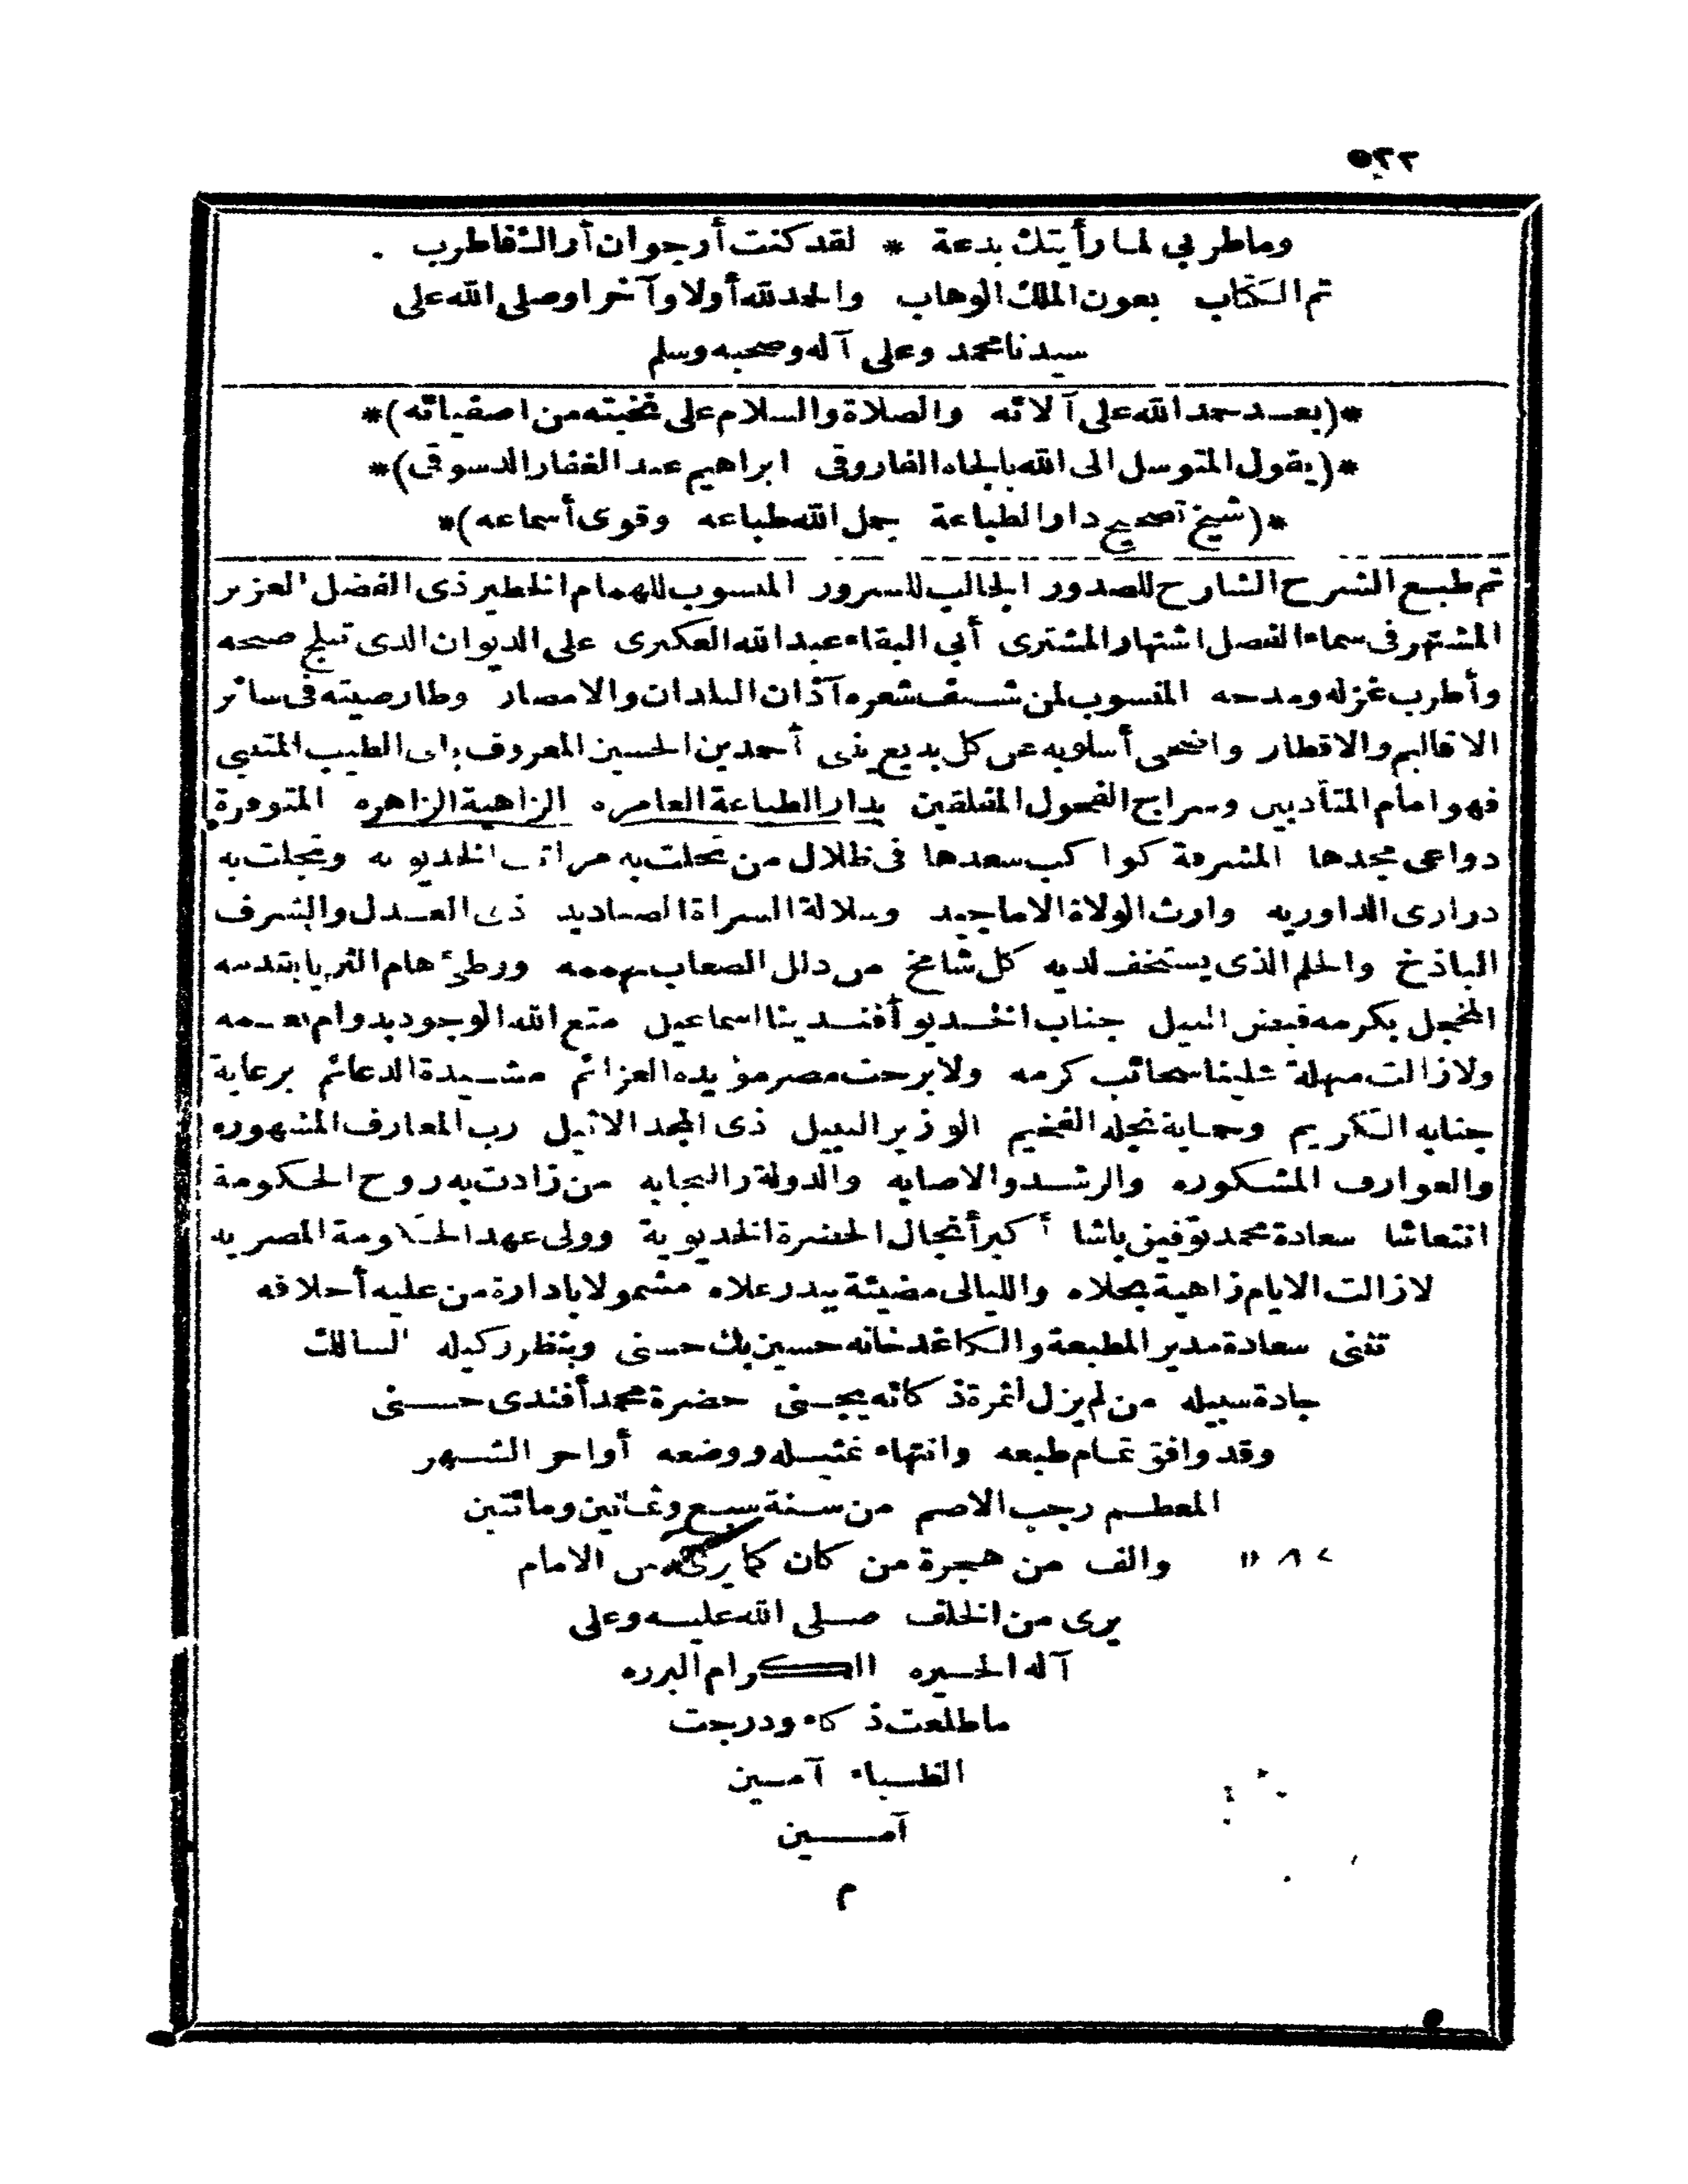 ٥٢٢
وما طربي لما رأيتك بدعة * لقد كنت أرجو ان أراك فاطرب
تم الكتاب بعون الملك الوهاب والحمد لله أولا وآخرا وصلى الله على
سيدنا محمد وعلى آله وصحبه وسلم
*(بعد حمد الله على آلائه والصلاة والسلام على نخبته من اصفيائه)*
*(يقول المتوسل الى الله بالجاه الفاروقى ابراهيم عبد الغفار الدسوقى)*
*(شيخ تصحيح دار الطباعة جمل الله طباعه وقوى أسماعه)*
تم طبع الشرح الشارح للصدور الجالب للسرور المنسوب للهمام الخطير ذى الفضل العزير
المشتهر فى سماء الفصل اشتهار المشترى أبي البقاء عبد الله العكبرى على الديوان الدى تبلج صبحه
وأطرب غزله ومدحه المنسوب لمن شنف شعره آذان البلدان والامصار وطار صيته فى سائر
الاقاليم والاقطار واضحى أسلوبه عن كل بديع ينبى أحمد بن الحسين المعروف بابى الطيب المتنبى
فهو امام المتأدبين وسراج الفحول المفلقين بدار الطباعة العامره الزاهية الزاهره المتوفرة
دواعى مجدها المشرقة كواكب سعدها فى ظلال من تحلت به مراتب الخديويه وتجلت به
درارى الداوريه وارث الولاة الاماجيد وسلالة السراة الصناديد ذى العدل والشرف
الباذخ والحلم الذى يستخف لديه كل شامخ من ذلل الصعاب بهممه ووطئ هام الثريا بقدمه
المخجل بكرمه فيض النيل جناب الخديو أفندينا اسماعيل متع الله الوجود بدوام نعمه
ولا زالت منهلة علينا سحائب كرمه ولا برحت مصر مؤيده العزائم مشيدة الدعائم برعاية
جنابه الكريم وحماية نجله الفخيم الوزير النبيل ذى المجد الاثيل رب المعارف المشهوره
والعوارف المشكوره والرشد والاصابه والدولة والنجابه من زادت به روح الحكومة
انتعاشا سعادة محمد توفيق باشا أكبر أنجال الحضرة الخديوية وولى عهد الحكومة المصريه
لا زالت الايام زاهية بحلاه والليالى مضيئة ببدر علاه مشمولا بادارة من عليه أخلاقه
تثنى سعادة مدير المطبعة والكاغدخانه حسين بك حسنى وبنظر وكيله السالك
جادة سبيله من لم يزل لثمرة ذكائه يجنى حضرة محمد أفندى حسنى
وقد وافق تمام طبعه وانتهاء تمثيله ووضعه أواخر الشهر
المعظم رجب الاصم من سنة سبع وثمانين ومائتين
والف من هجرة من كان كما يرى من الامام
يرى من الخلف صلى الله عليه وعلى
آله الخيره الكرام البرره
ما طلعت ذكاء ودرجت
الظباء آمين
آمين
م